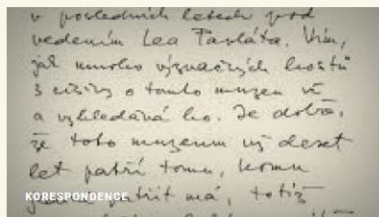 v posledních letech pod
vedením Lea Pavláta. Vím,
jak mnoho význačných hostů
z ciziny o tomto muzeu ví
a vyhledává ho. Je dobře,
že toto muzeum už deset
let patří tomu, komu
patřit má, totiž
KORESPONDENCE